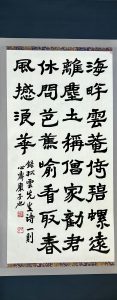 海畔雲菴倚碧螺遠
離塵土稱僧家勸君
休問芭蕉喻看取春
風撼浪華
雲先生詩一則